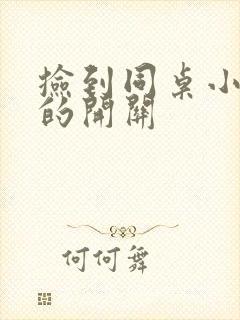 撿到同桌小
的開關
何何舞